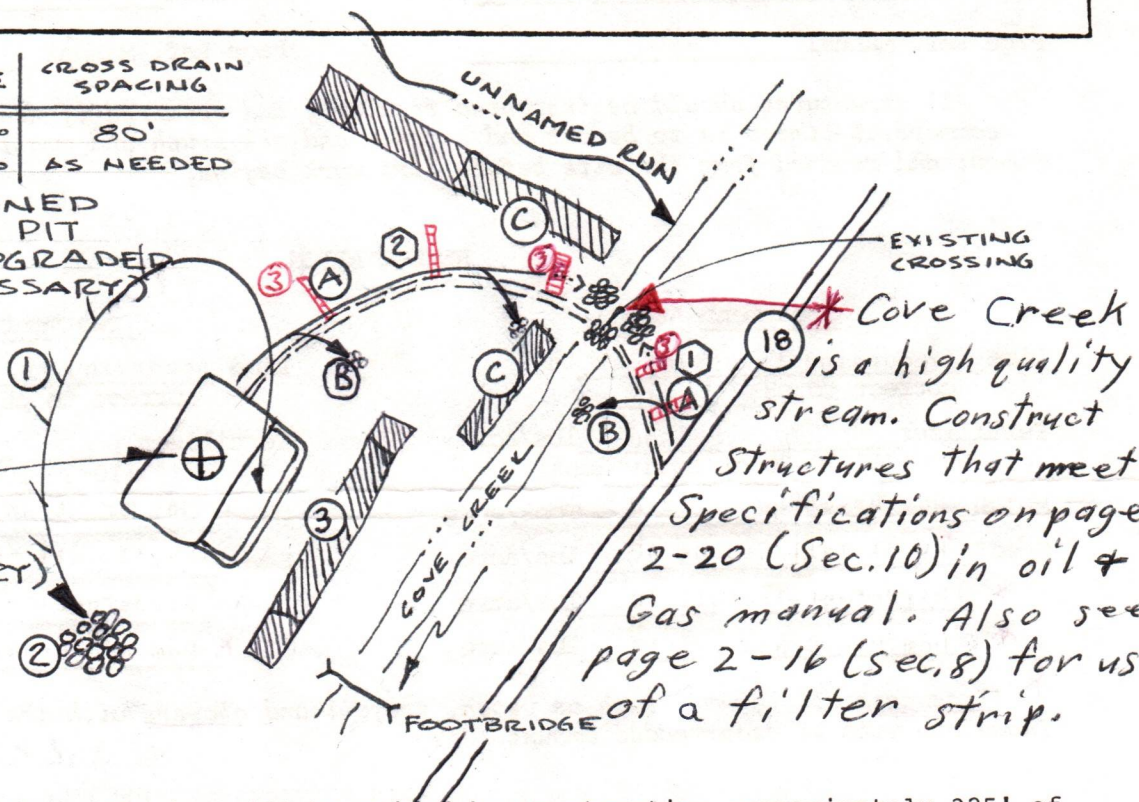 CROSS DRAIN
SPACING
80'
AS NEEDED
UNNAMED RUN
PIT
C
2
3
A
3
EXISTING
CROSSING
1
B
C
18
3
1
A
B
3
2
COVE CREEK
FOOTBRIDGE
* Cove Creek
is a high quality
stream. Construct
structures that meet
Specifications on page
2-20 (Sec. 10) in oil +
Gas manual. Also see
page 2-16 (Sec. 8) for us
of a filter strip.